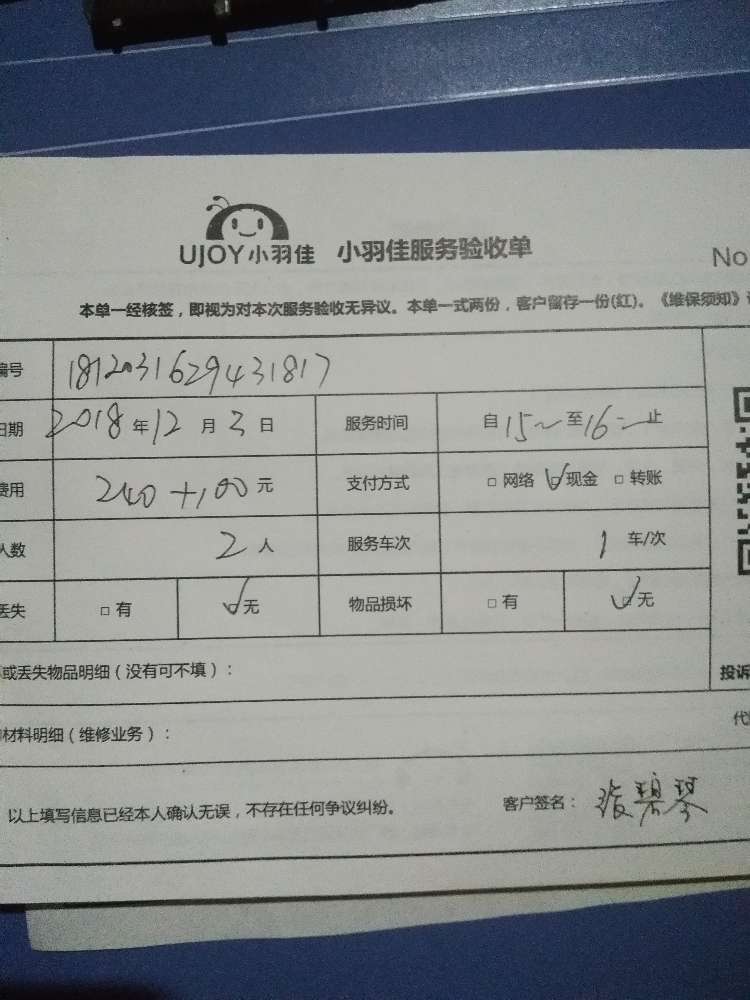 UJOY小羽佳 小羽佳服务验收单
No
本单一经核签，即视为对本次服务验收无异议。本单一式两份，客户留存一份(红)。《维保须知》
编号 1812031629431817
日期 2018年12月3日 服务时间 自15~至16~止
费用 240+100元 支付方式 □网络 ☑现金 □转账
人数 2人 服务车次 1车/次
丢失 □有 ☑无 物品损坏 □有 ☑无
或丢失物品明细（没有可不填）：
投诉
材料明细（维修业务）：
以上填写信息已经本人确认无误，不存在任何争议纠纷。 客户签名：张碧琴